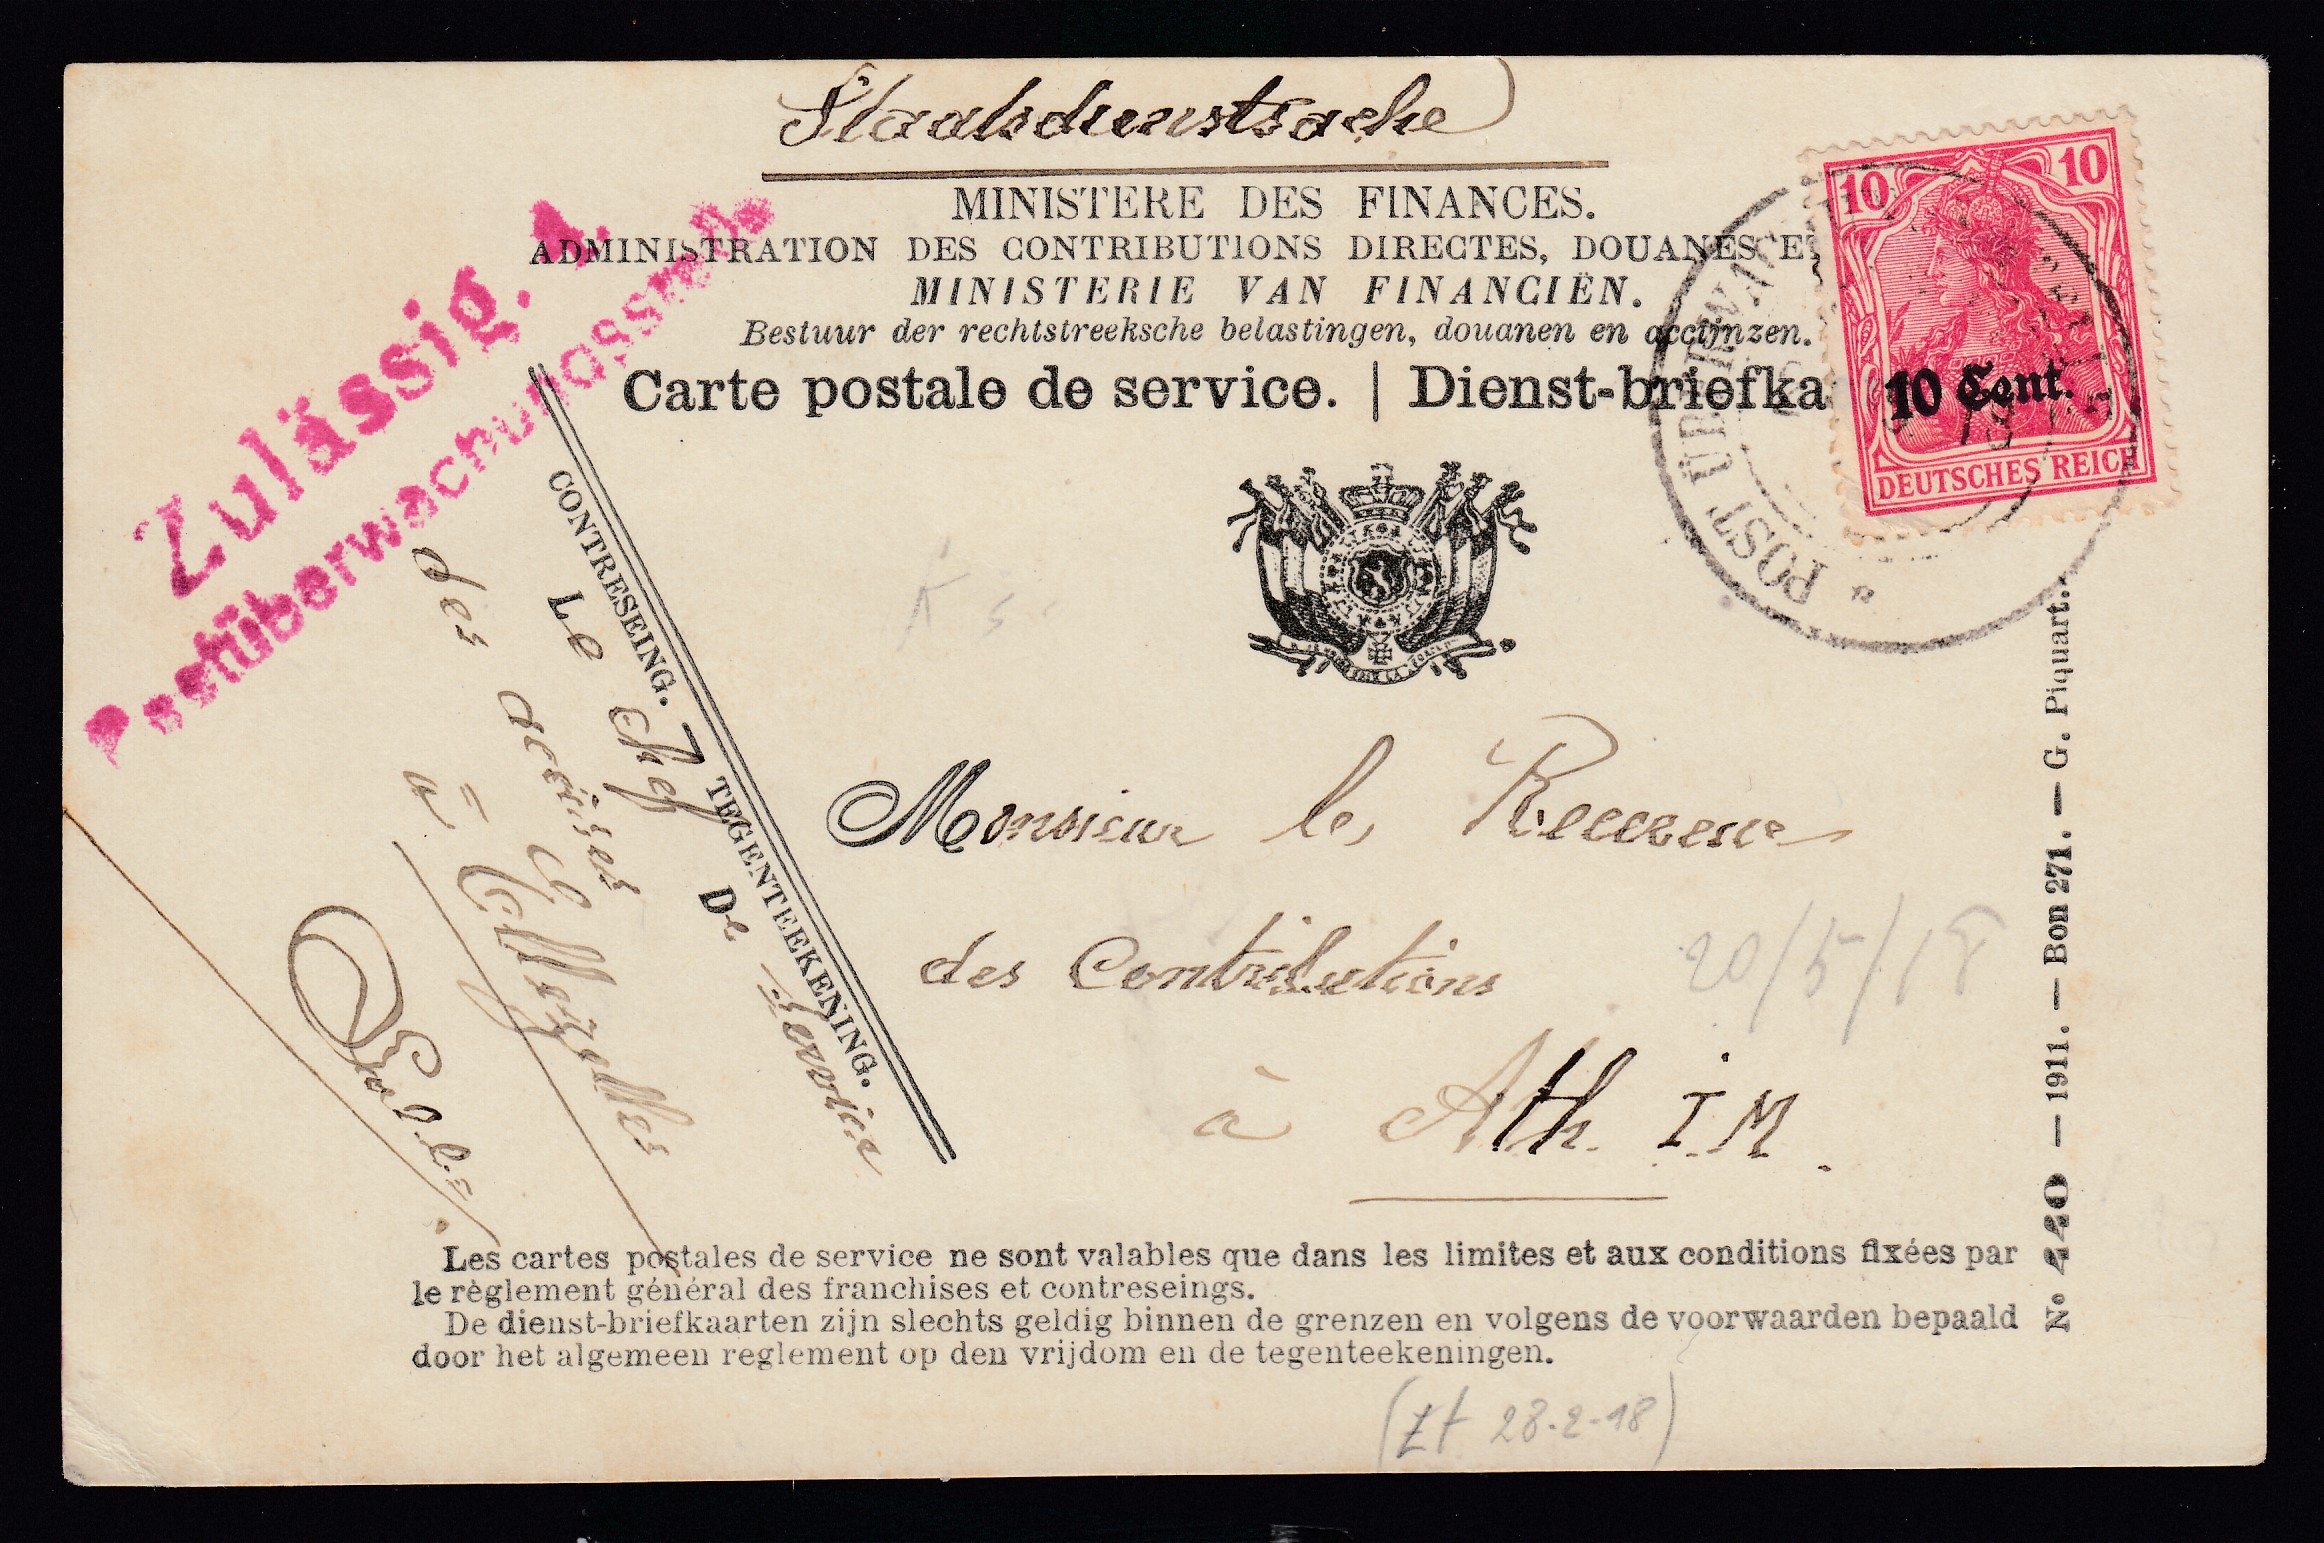 Staatsdienstsache
MINISTERE DES FINANCES.
ADMINISTRATION DES CONTRIBUTIONS DIRECTES, DOUANES E
MINISTERIE VAN FINANCIËN.
Bestuur der rechtstreeksche belastingen, douanen en accijnzen.
Carte postale de service. | Dienst-briefka
10 10
10 Cent.
DEUTSCHES REICH
POST ÜBERWA
Zulässig. A.
Postüberwachungsstelle
CONTRESEING. TEGENTEEKENING.
Le chef De service
des accises
à Ellezelles
Monsieur le Receveur
des Contributions
à Ath I.M.
20/5/18
Les cartes postales de service ne sont valables que dans les limites et aux conditions fixées par
le règlement général des franchises et contreseings.
De dienst-briefkaarten zijn slechts geldig binnen de grenzen en volgens de voorwaarden bepaald
door het algemeen reglement op den vrijdom en de tegenteekeningen.
N° 440 — 1911. — Bon 271. — G. Piquart.
(Zt 28-2-18)